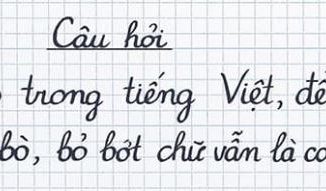 Câu hỏi
trong tiếng Việt, để
bò, bỏ bớt chữ vẫn là